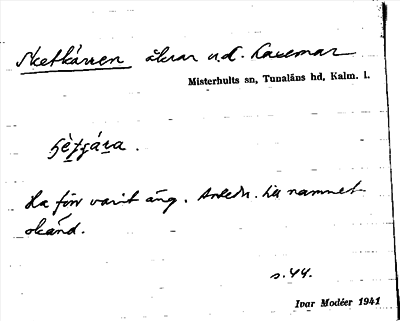 Sketkärren åkrar u.d. Lasemar
Misterhults sn, Tunaläns hd, Kalm. l.
Ha förr varit äng. Anledn. till namnet
okänd.
s. 44.
Ivar Modéer 1941